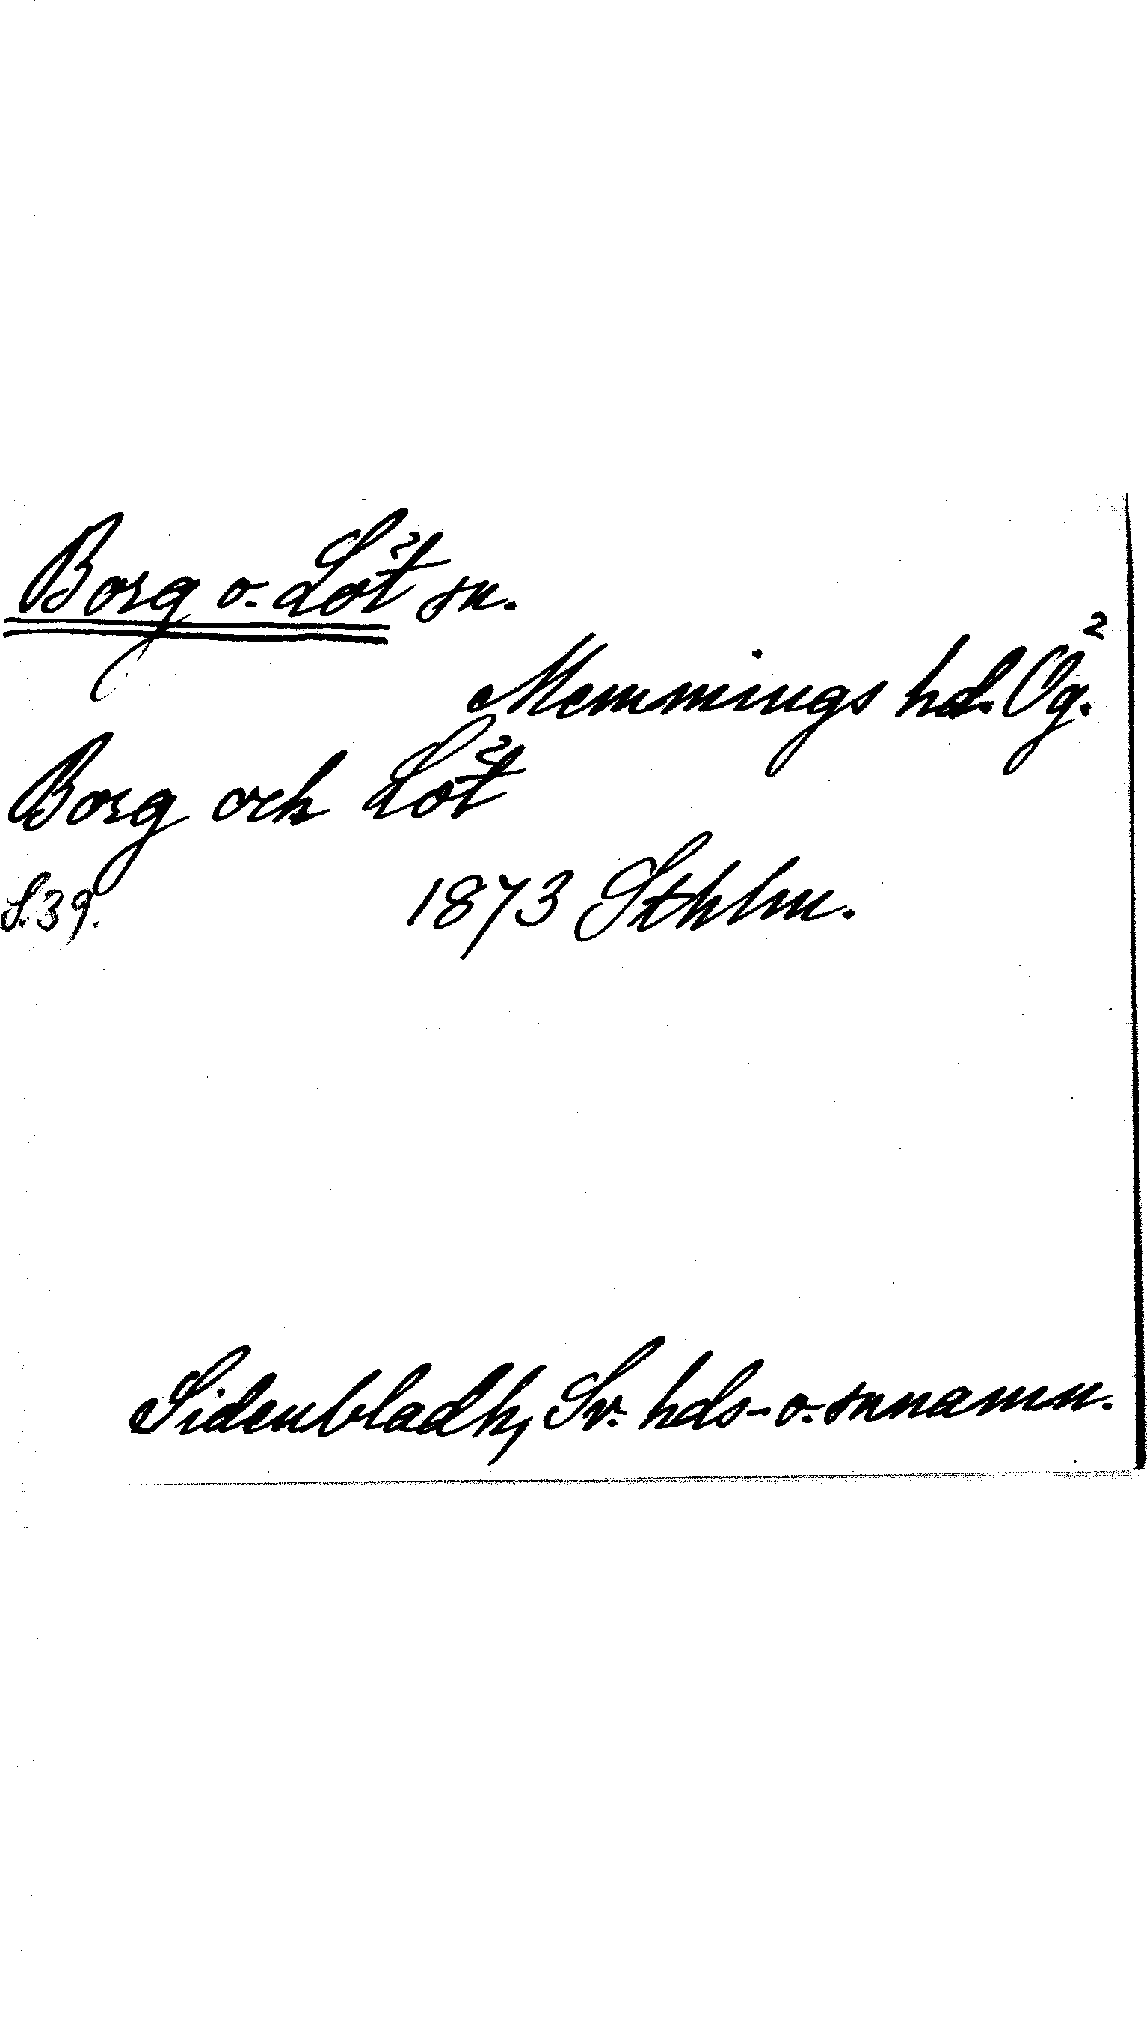 Borg o. Löt sn.
Memmings hd. Ög.
Borg och Löt
S. 39. 1873 Sthlm.
Sidenbladh, Sv. hds- o. snnamn.